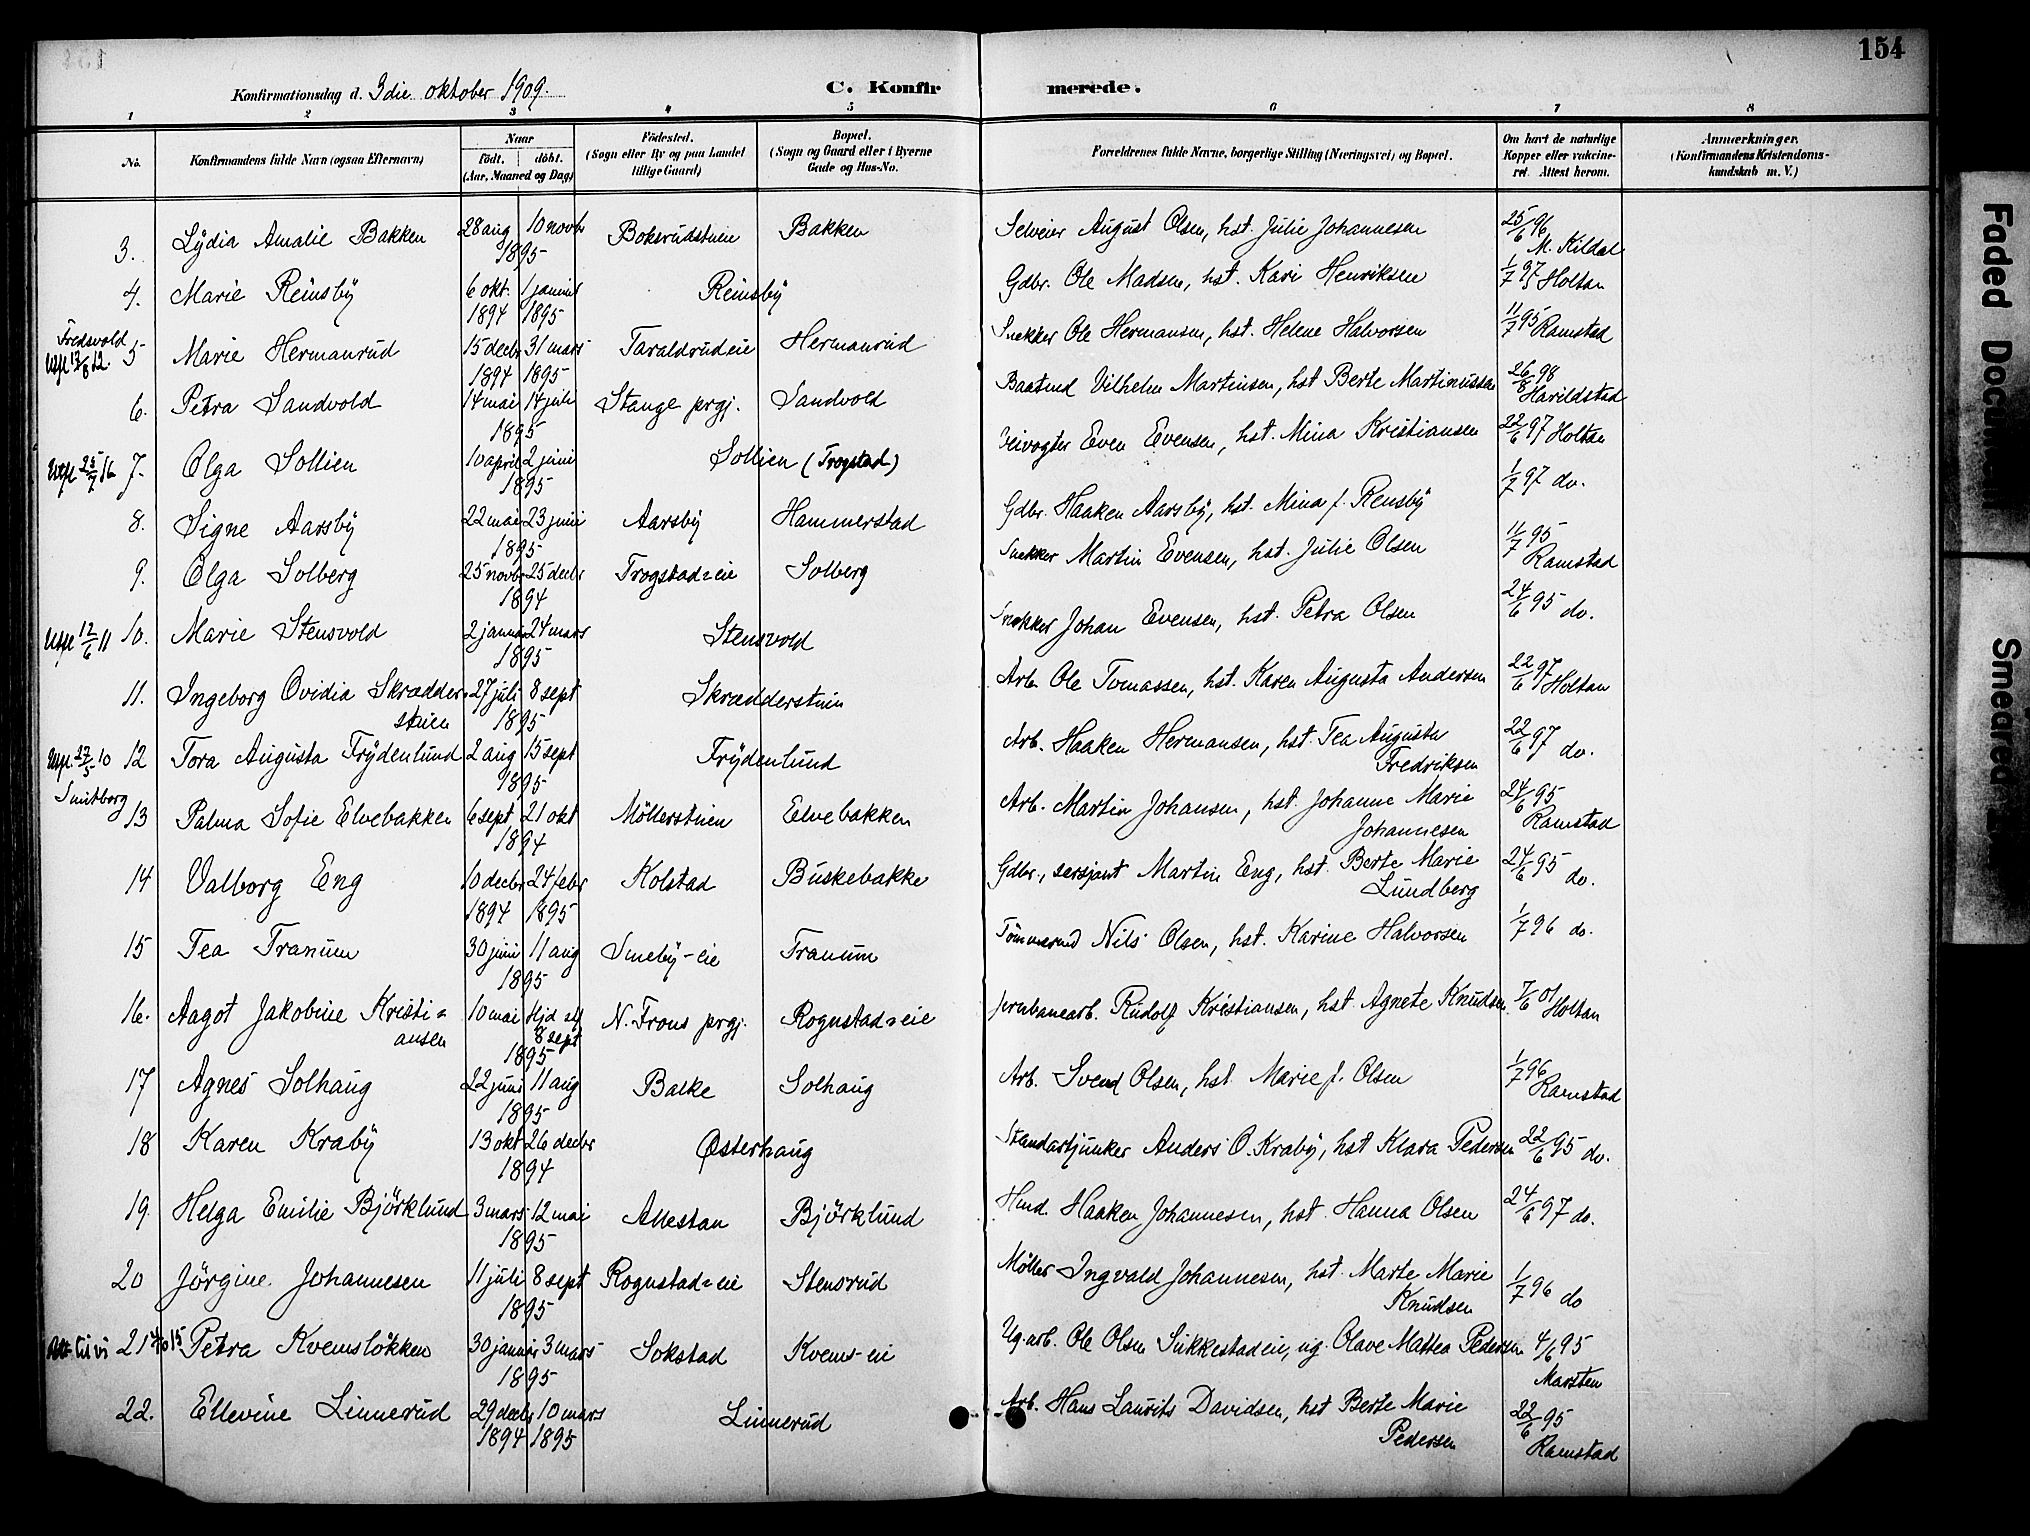 154
Konfirmationsdag d. 3die oktober 1909.
C. Konfirmerede.
1 2 3 4 5 6 7 8
No. Konfirmandens fulde Navn (ogsaa Efternavn) Naar født. døbt. (Aar, Maaned og Dag) Fødested. (Sogn eller By og paa Landet tillige Gaard) Bopæl. (Sogn og Gaard eller i Byerne Gade og Hus-No. Forældrenes fulde Navne, borgerlige Stilling (Næringsvei) og Bopæl. Om havt de naturlige Kopper eller vakcineret. Attest herom. Anmærkninger. (Konfirmandens Kristendomskundskab m. V.)
3. Lydia Amalie Bakken 28 aug 10 novbr 1895 Boksrudstuen Bakken Selveier August Olsen, hst. Julie Johannesen 25/6 96 M. Kildal
4. Marie Reinsby 6 okt. 1894 1 januar 1895 Reinsby Gdbr. Ole Madsen, hst. Kari Henriksen 1/7 97 Holtan
Fredsvold
Utfl 13/8 12. 5 Marie Hermanrud 15 decbr 1894 31 mars 1895 Taraldrudeie Hermanrud Snekker Ole Hermansen, hst. Helene Halvorsen 11/7 95 Ramstad
6. Petra Sandvold 14 mai 14 juli 1895 Stange prgj. Sandvold Baatsmd Vilhelm Martinsen, hst Berte Martinussen 26/8 98 Harildstad
Utfl 25/7 16 7. Olga Sollien 10 april 2 juni 1895 Sollien (Trogstad) Veivogter Even Evensen, hst. Mina Kristiansen 22/6 97 Holtan
8. Signe Aarsby 22 mai 23 juni 1895 Aarsby Hammerstad Gdbr. Haaken Aarsby, hst. Mina f. Rensby 1/7 97 do.
9. Olga Solberg 25 novbr 25 decbr 1894 Trogstad=eie Solberg Snekker Martin Evensen, hst. Julie Olsen 11/7 95 Ramstad
Utfl 12/6 11 10. Marie Stensvold 2 januar 24 mars 1895 Stensvold Snekker Johan Evensen, hst. Petra Olsen 24/6 95 do.
11. Ingeborg Ovidia Skrædderstuen 27 juli 8 sept 1895 Skrædderstuen Arb. Ole Tomassen, hst. Karen Augusta Andersen 22/6 97 Holtan
Utfl. 27/5 10 12 Tora Augusta Frydenlund 2 aug 15 sept 1895 Frydenlund Arb. Haaken Hermansen, hst. Tea Augusta Fredriksen 22/6 97 do.
Smitborg
13 Palma Sofie Elvebakken 6 sept 21 okt 1894 Möllerstuen Elvebakken Arb. Martin Johansen, hst. Johanne Marie Johannesen 24/6 95 Ramstad
14 Valborg Eng 10 decbr 1894 24 febr 1895 Kolstad Buskebakke Gdbr., sersjant Martin Eng, hst. Berte Marie Lundberg 24/6 95 do.
15 Tea Tranum 30 juni 11 aug 1895 Smeby-eie Tranum Tömmermd Nils Olsen, hst. Karine Halvorsen 1/7 96 do.
16. Aagot Jakobine Kristiansen 10 mai Hjd stf 8 sept 1895 N. Frons prgj. Rognstad=eie Jernbanearb. Rudolf Kristiansen, hst. Agnete Knudsen. 7/6 01 Holtan
17 Agnes Solhaug 22 juni 11 aug 1895 Balke Solhaug Arb. Svend Olsen, hst. Marie f. Olsen 1/7 96 Ramstad
18 Karen Kraby 13 okt 26 decbr 1894 Østerhaug Standartjunker Anders O. Kraby, hst Klara Pedersen 22/6 95 do.
19 Helga Emilie Björklund 3 mars 12 mai 1895 Allestan Björklund Hmd. Haaken Johannesen, hst. Hanna Olsen 24/6 97 do.
20 Jörgine Johannesen 11 juli 8 sept 1895 Rognstad=eie Stensrud Möller Ingvald Johannesen, hst. Marte Marie Knudsen 1/7 96 do
21 4/10 15 Petra Kvemslökken 30 januar 3 mars 1895 Sokstad Kvems-eie Ug.arb. Ole Olsen Sukkestadeie, ug. Olave Mattea Pedersen 4/6 95 Marsten
22. Ellevine Linnerud 29 decbr 1894 10 mars 1895 Linnerud Arb. Hans Laurits Davidsen, hst Berte Marie Pedersen 22/6 95 Ramstad
Faded Document
Smeared